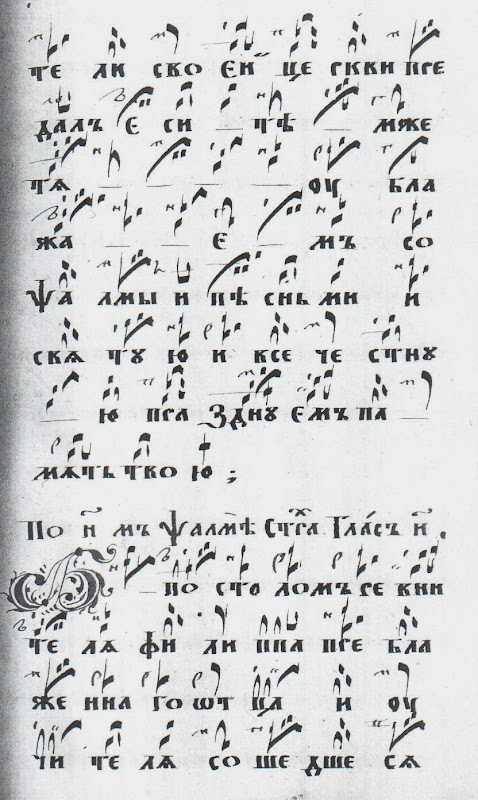 те ли сво еи це ркви пре
далъ е си тѣ мже
тѧ оу бла
жа е мъ со
ѱа лмы и пѣ сньми и
свѧ тую и все че стну
ю пра здну емъ па
мѧть тво ю ;
По н҃ мъ ѱалмѣ Стра Гла́съ и҃
А по сто ломъ ре вни
те лѧ фи ли ппа пре бла
же нна го ѡт ца и оу
чи те лѧ со ше дше сѧ